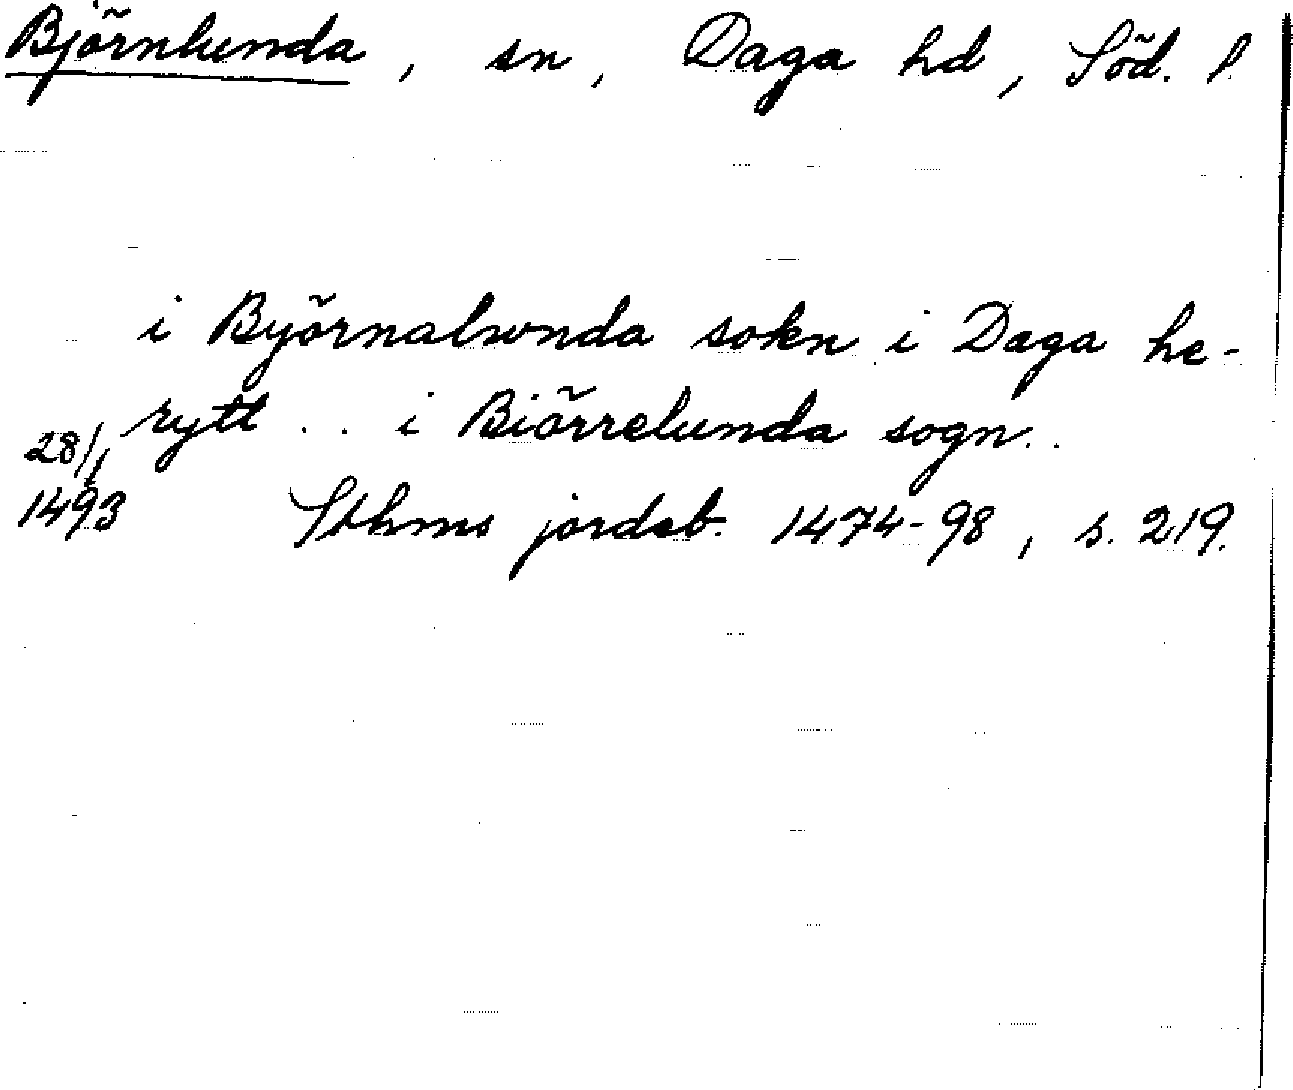 Björnlunda, sn, Daga hd, Söd. l.
i Byörnalwnda sokn i Daga he-
rytt .. i Biörrelunda sogn..
28/1
1493 Sthms jordab. 1474-98, s. 219.